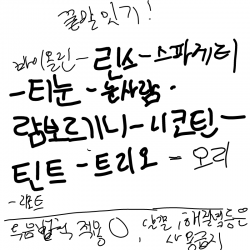 끝말잇기!
바이올린-린스-스파게티
-티눈-눈사람-
람보르기니-니코틴-
틴트-트리오=오리
-리본트
두음법칙 적용 O, 단끝, 해질녘등은
사용금지